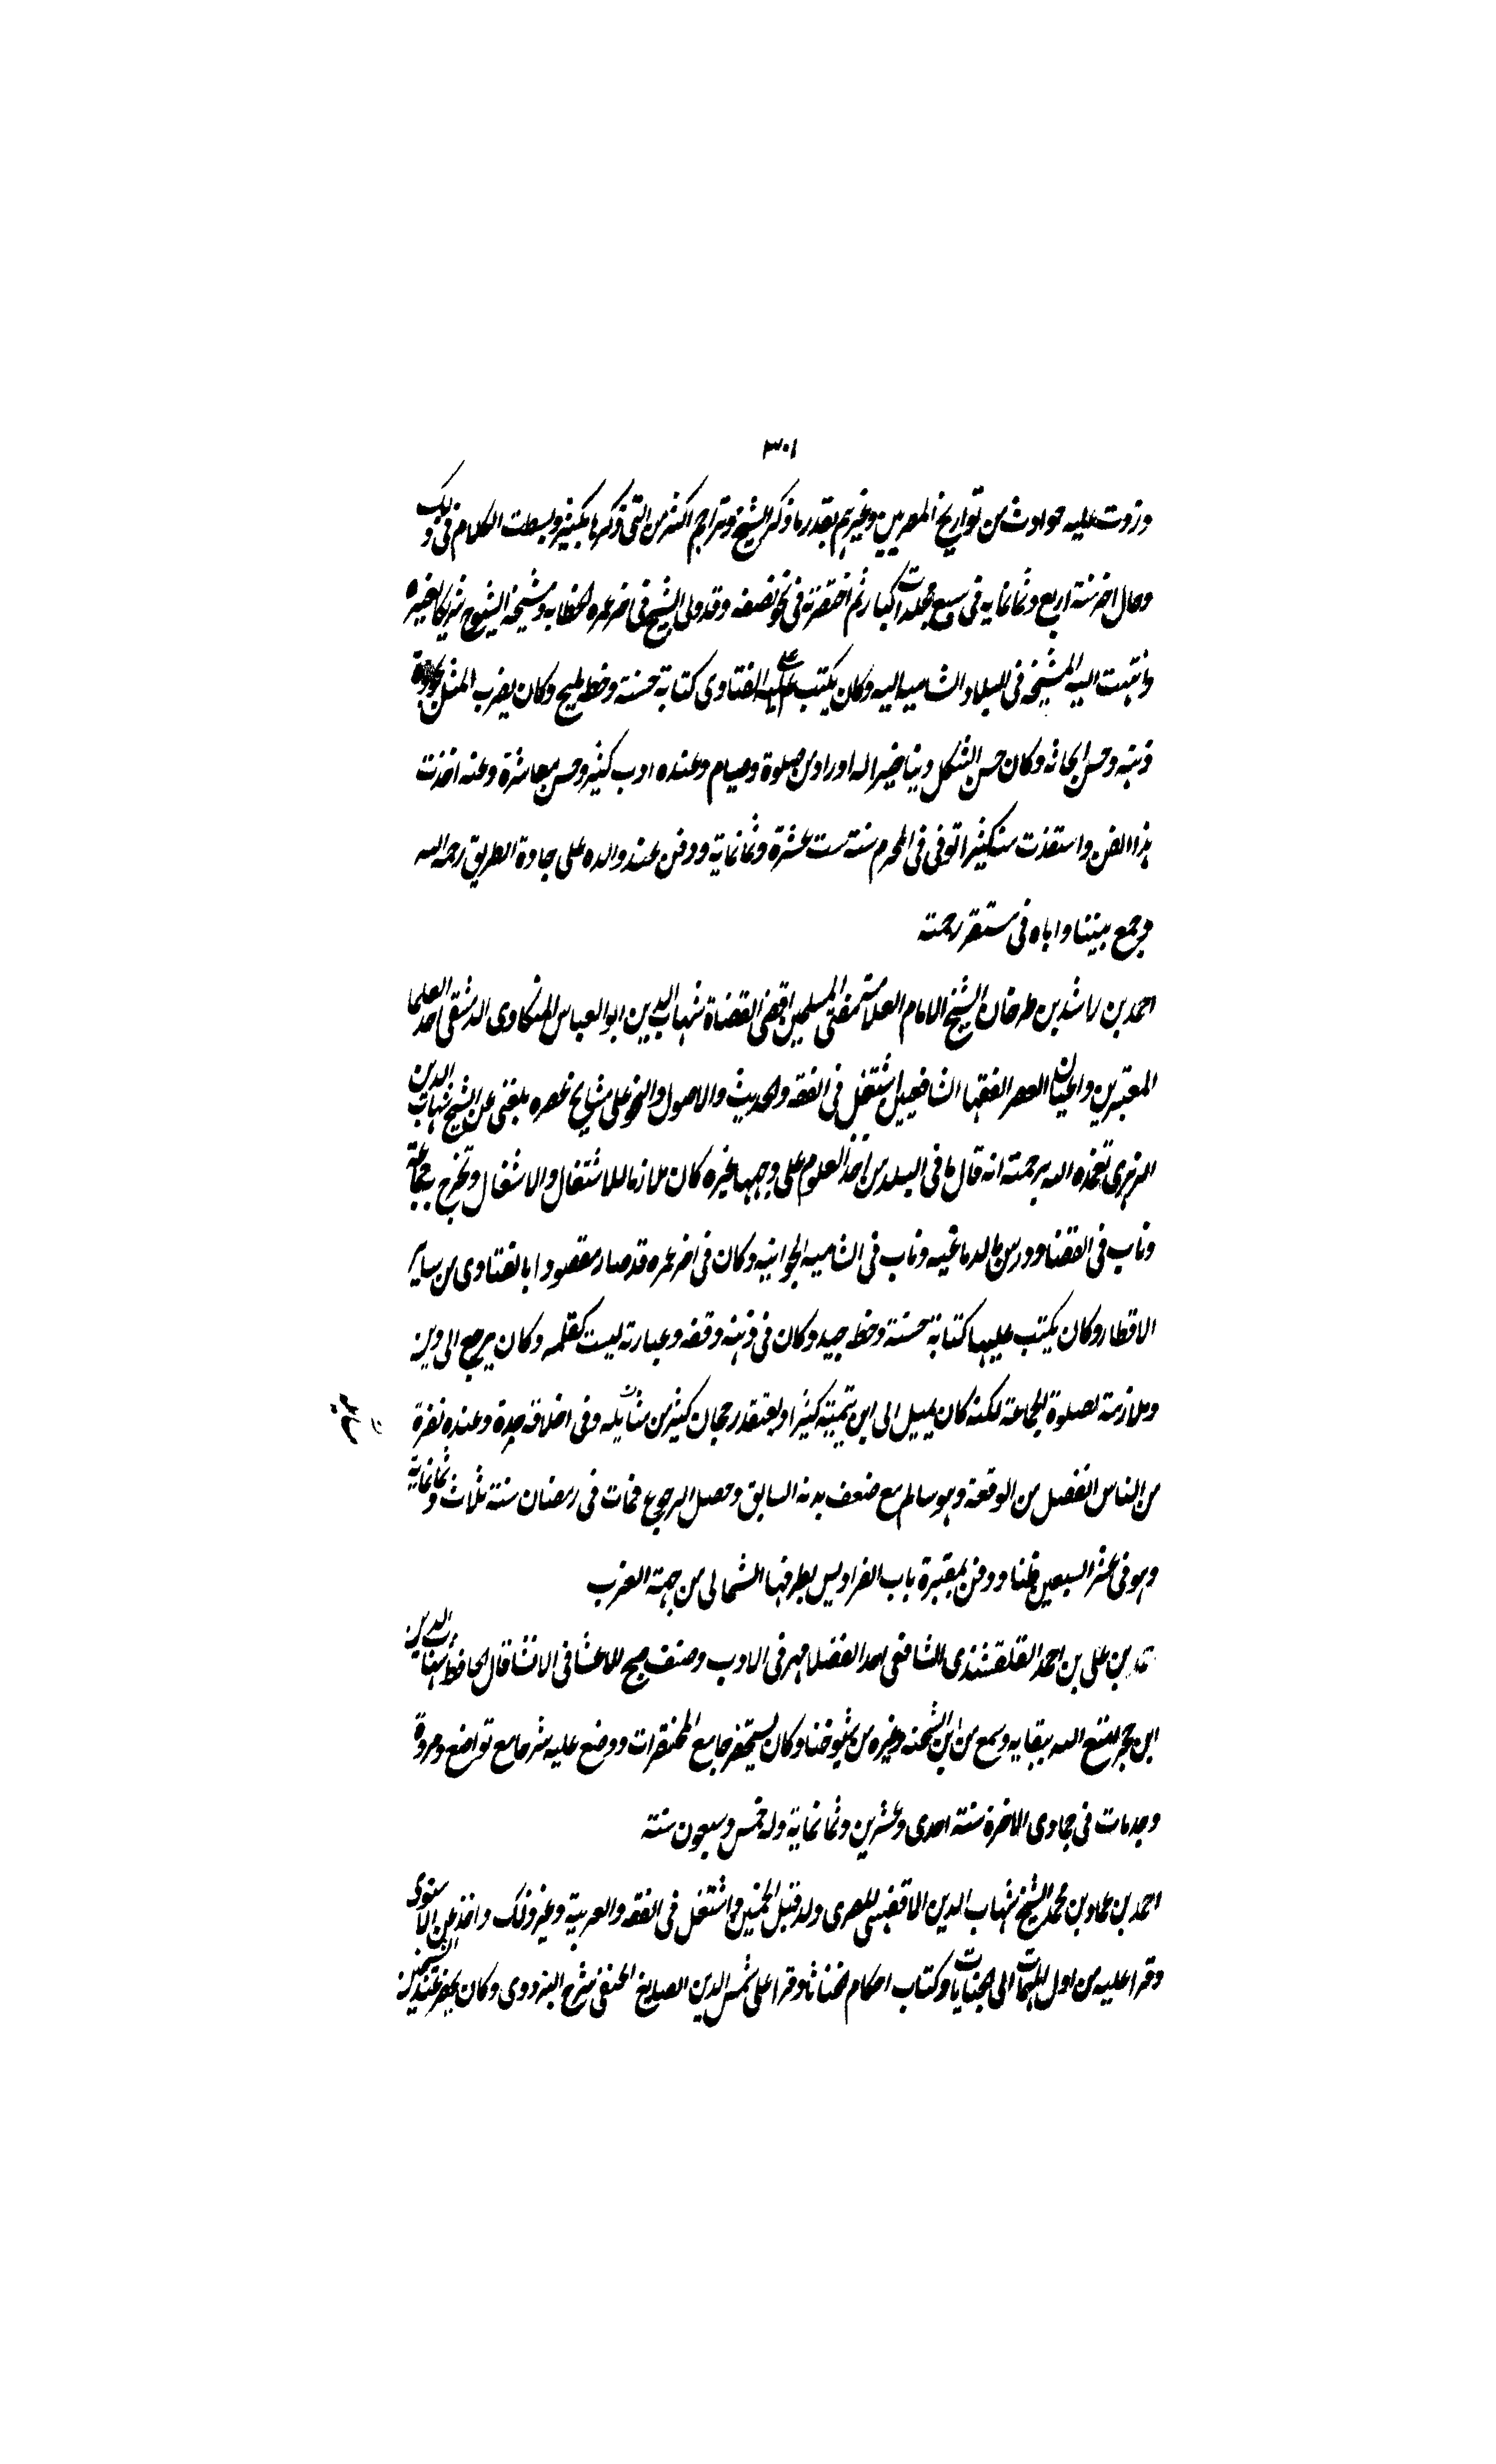 ٣٠١
وزدت عليه حوادث من تواريخ المصريين وغيرهم بقدر ما ذكر الشيخ وتراجم اكثر من التى ذكرها بكثير وبسطت الكلام فى ذلك
وحال اخر سنة اربع وثمانمايه فى سبع مجلدات كبار ثم اختصرته فى نحو نصفه وقد ولى الشيخ فى اخر عمره الخطابه ومشيخة الشيوخ شريكا لغيره
وانتهت اليه المشيخه فى البلاد الشاميه اليه وكان يكتب على الفتاوى كتابة حسنة وخطه مليح وكان يضرب المثل بجودة
ذهنه وحسن ابحاثه وكان حسن الشكل دينا خيرا له اوراد من صلوة وصيام وعنده ادب كثير وحسن معاشرة وعنه اخذت
هذا الفن واستفدت منه كثيرا توفى فى المحرم سنة ست عشرة وثمانماية ودفن عند والده على جادة الطريق رحمه الله
وجمع بيننا واياه فى مستقر رحمته
احمد بن راشد بن طرخان الشيخ الامام العلامة مفتى المسلمين اقضى القضاة شهاب الدين ابو العباس الملكاوى الدمشقى احد العلما
المعتبرين واعيان العصر الفقها الشافعيين اشتغل فى الفقه والحديث والاصول والنحو على مشايخ عصره بلغنى عن الشيخ شهاب الدين
الزهرى تغمده الله برحمته انه قال ما فى البلد من اخذ العلوم على وجهها غيره كان ملازما للاشتغال والاشغال وتخرج به جماعة
وناب فى القضا ودرس بالدماغيه وناب فى الشاميه الجوانيه وكان فى اخر عمره قد صار مقصودا بالفتاوى من ساير
الاقطار وكان يكتب عليها كتابة حسنة وخط جيد وكان فى ذهنه وقفه وعبارته ليست كقلمه وكان يرجع الى دين
وملازمة لصلوة الجماعة لكنه كان يميل الى ابن تيمية كثيرا ويعتقد رجحان كثير من مسايله وفى اخلاقه حدة وعنده نفرة
من الناس انفصل من الوقعة وهو سالم مع ضعف بدنه السابق وحصل له جوع فمات فى رمضان سنة ثلاث وثمانماية
وهو فى عشر السبعين ظنا ودفن بمقبرة باب الفراديس بطرفها الشمالى من جهة الغرب
احمد بن على بن احمد القلقشندى الشافعى احد الفضلا مهر فى الادب وصنف صبح الاعشا فى الانشا قال الحافظ شهاب الدين
ابن حجر امتع الله ببقايه وسمع من ابن الشحنه وغيره من شيوخنا وكان يستحضر جامع المختصرات ووضع عليه شرحا مع تواضع ومروة
وجد مات فى جمادى الاخرة سنة احدى وعشرين وثمانماية وله خمس وستون سنة
احمد بن عماد بن محمد الشيخ شهاب الدين الاقفهسى المصرى ولد قبل الخمسين واشتغل فى الفقه والعربية وغير ذلك واخذ عن الاسنوى
وقرا عليه من اول المهمات الى الجنايات وكتاب احكام الخناثا وقرا على شمس الدين الصايغ الحنفى شرح البزدوى وكان يحضر عند الشيخ